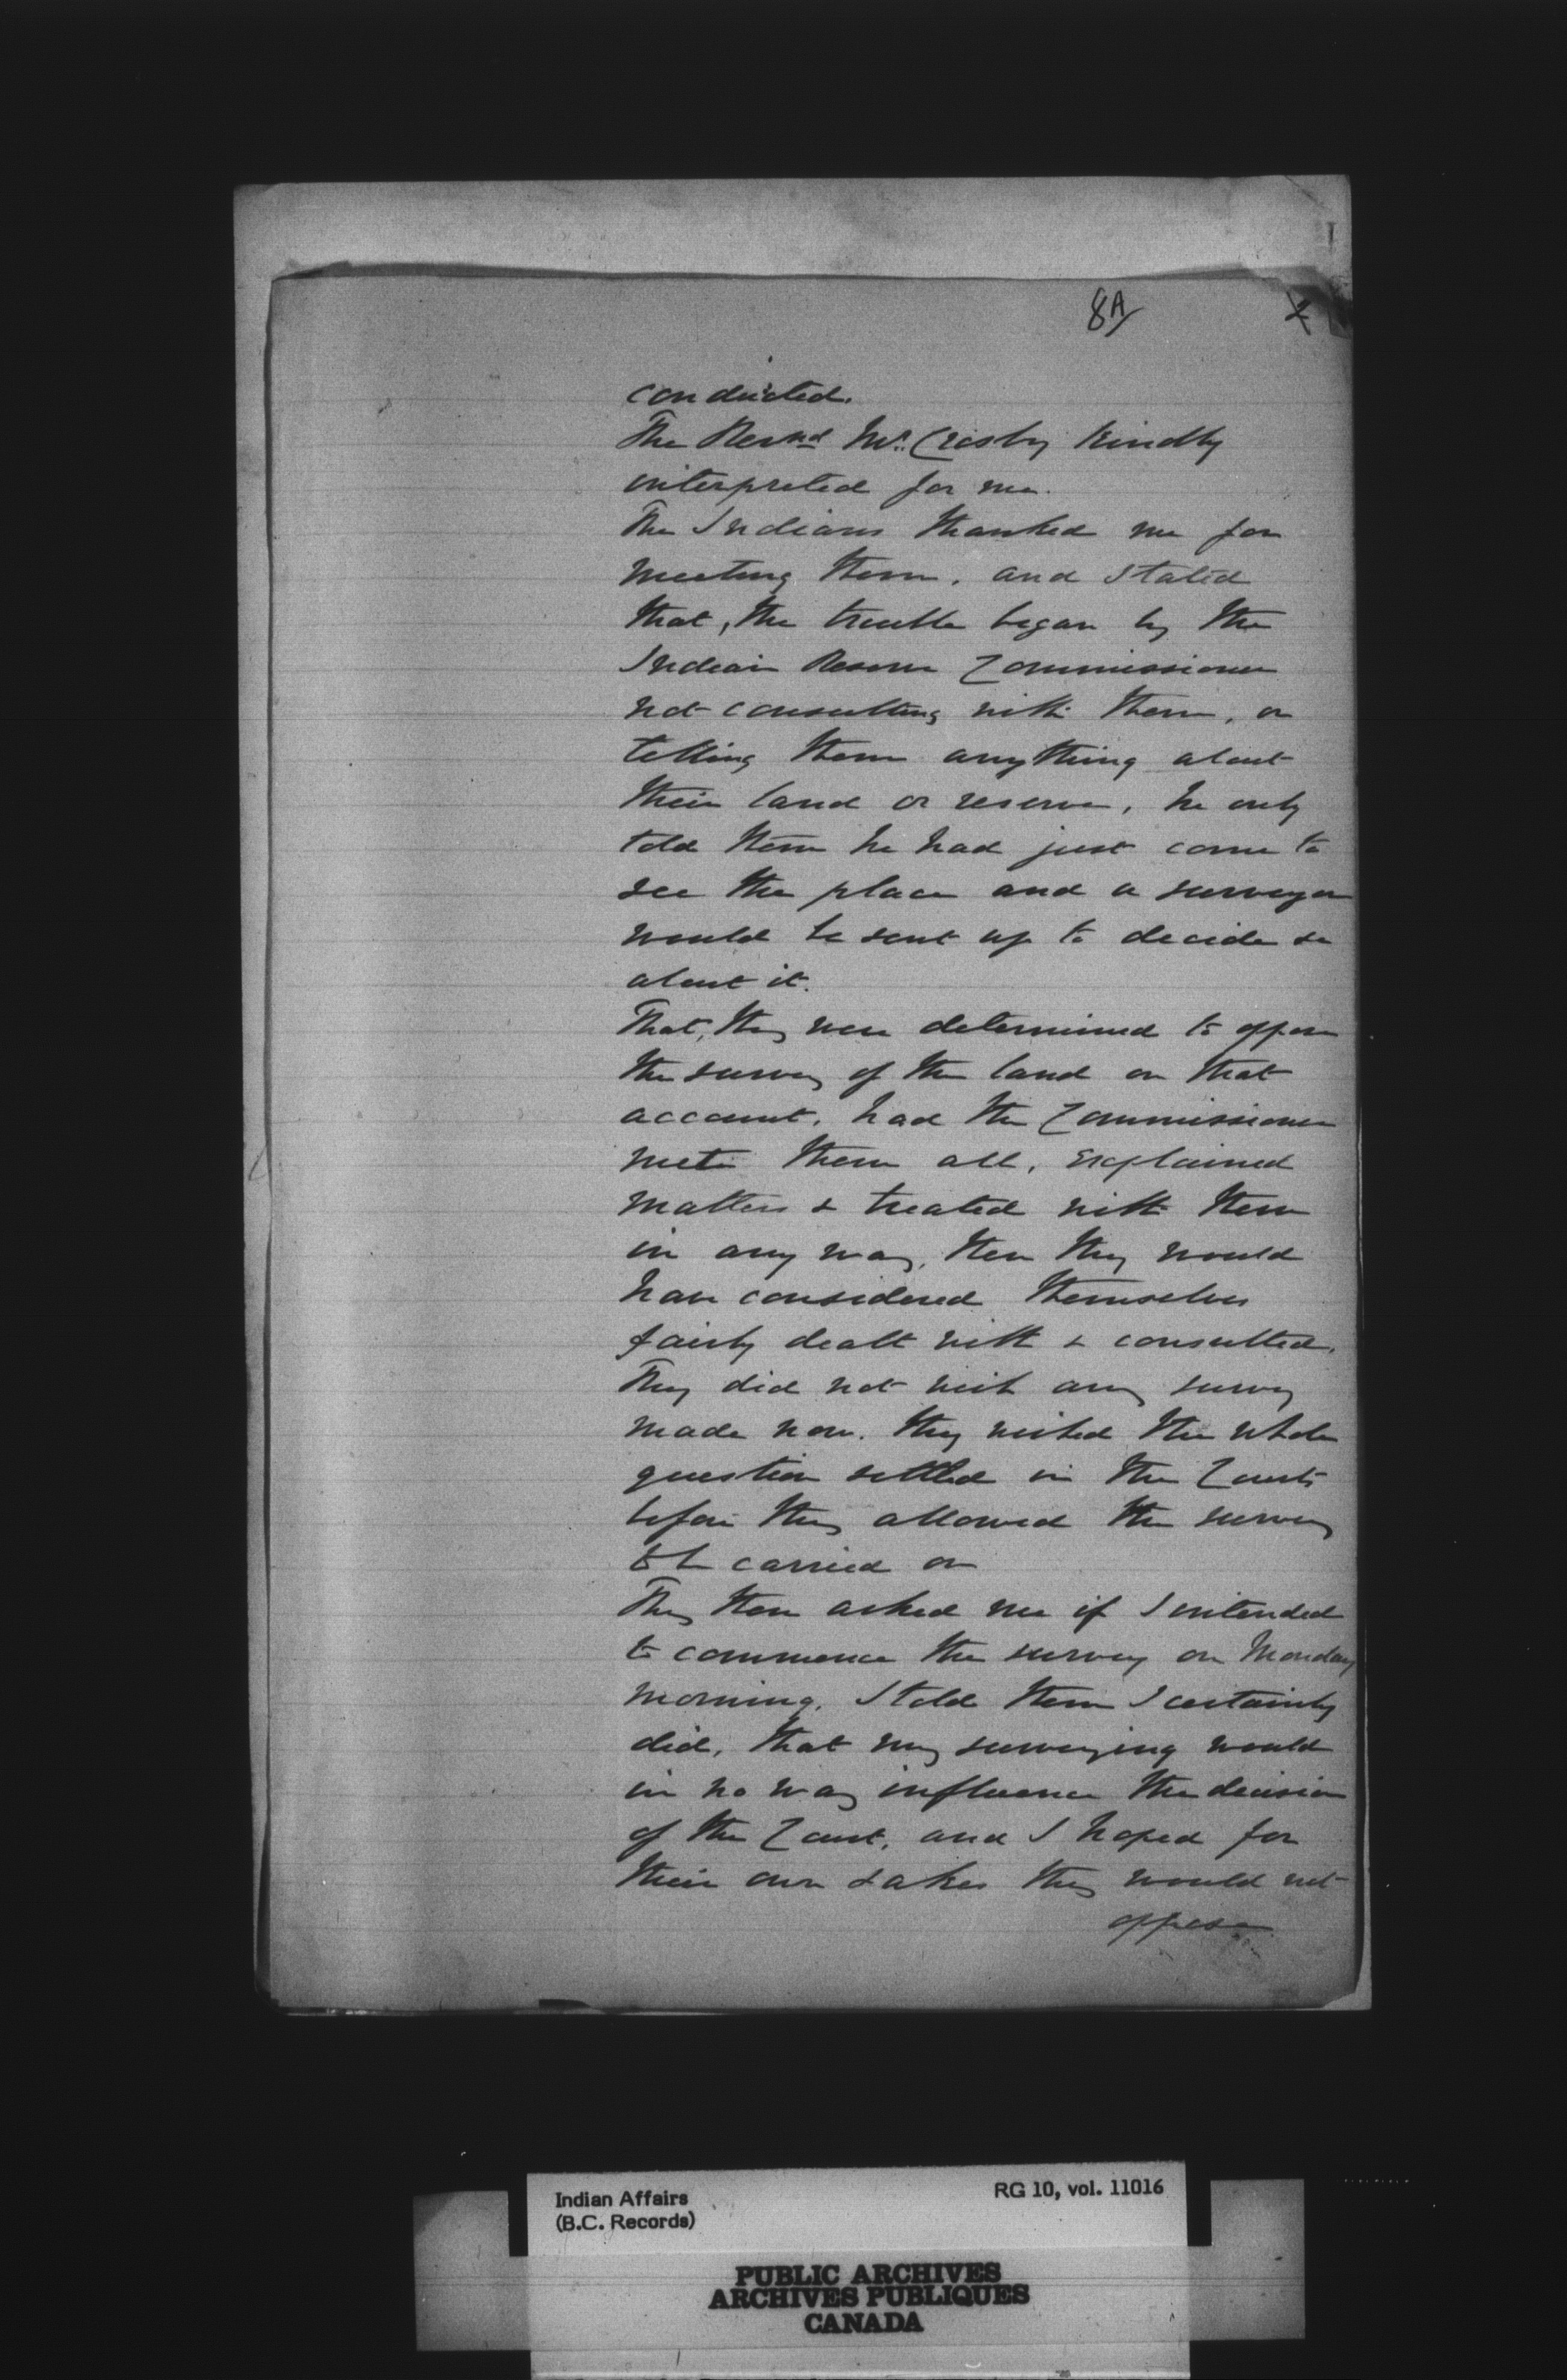 8A
2
conducted.
The Revnd Mr. Crosby kindly
interpreted for me.
The Indians thanked me for
meeting them, and stated
that, the trouble began by the
Indian Reserve Commissioner
not consulting with them, or
telling them anything about
their land or reserve, he only
told them he had just come to
see the place and a surveyor
would be sent up to decide
about it.
That, they were determined to oppose
the survey of the land on that
account, had the Commissioner
met them all, explained
matters & treated with them
in any way, then they would
have considered themselves
fairly dealt with & consulted.
They did not wish any survey
made now. they wished the whole
question settled in the Courts
before they allowed the survey
to be carried on
They then asked me if I intended
to commence the survey on Monday
morning, I told them I certainly
did, that my surveying would
in no way influence the decision
of the Court, and I hoped for
their own sakes they would not
oppose
Indian Affairs
(B.C. Records)
RG 10, vol. 11016
PUBLIC ARCHIVES
ARCHIVES PUBLIQUES
CANADA